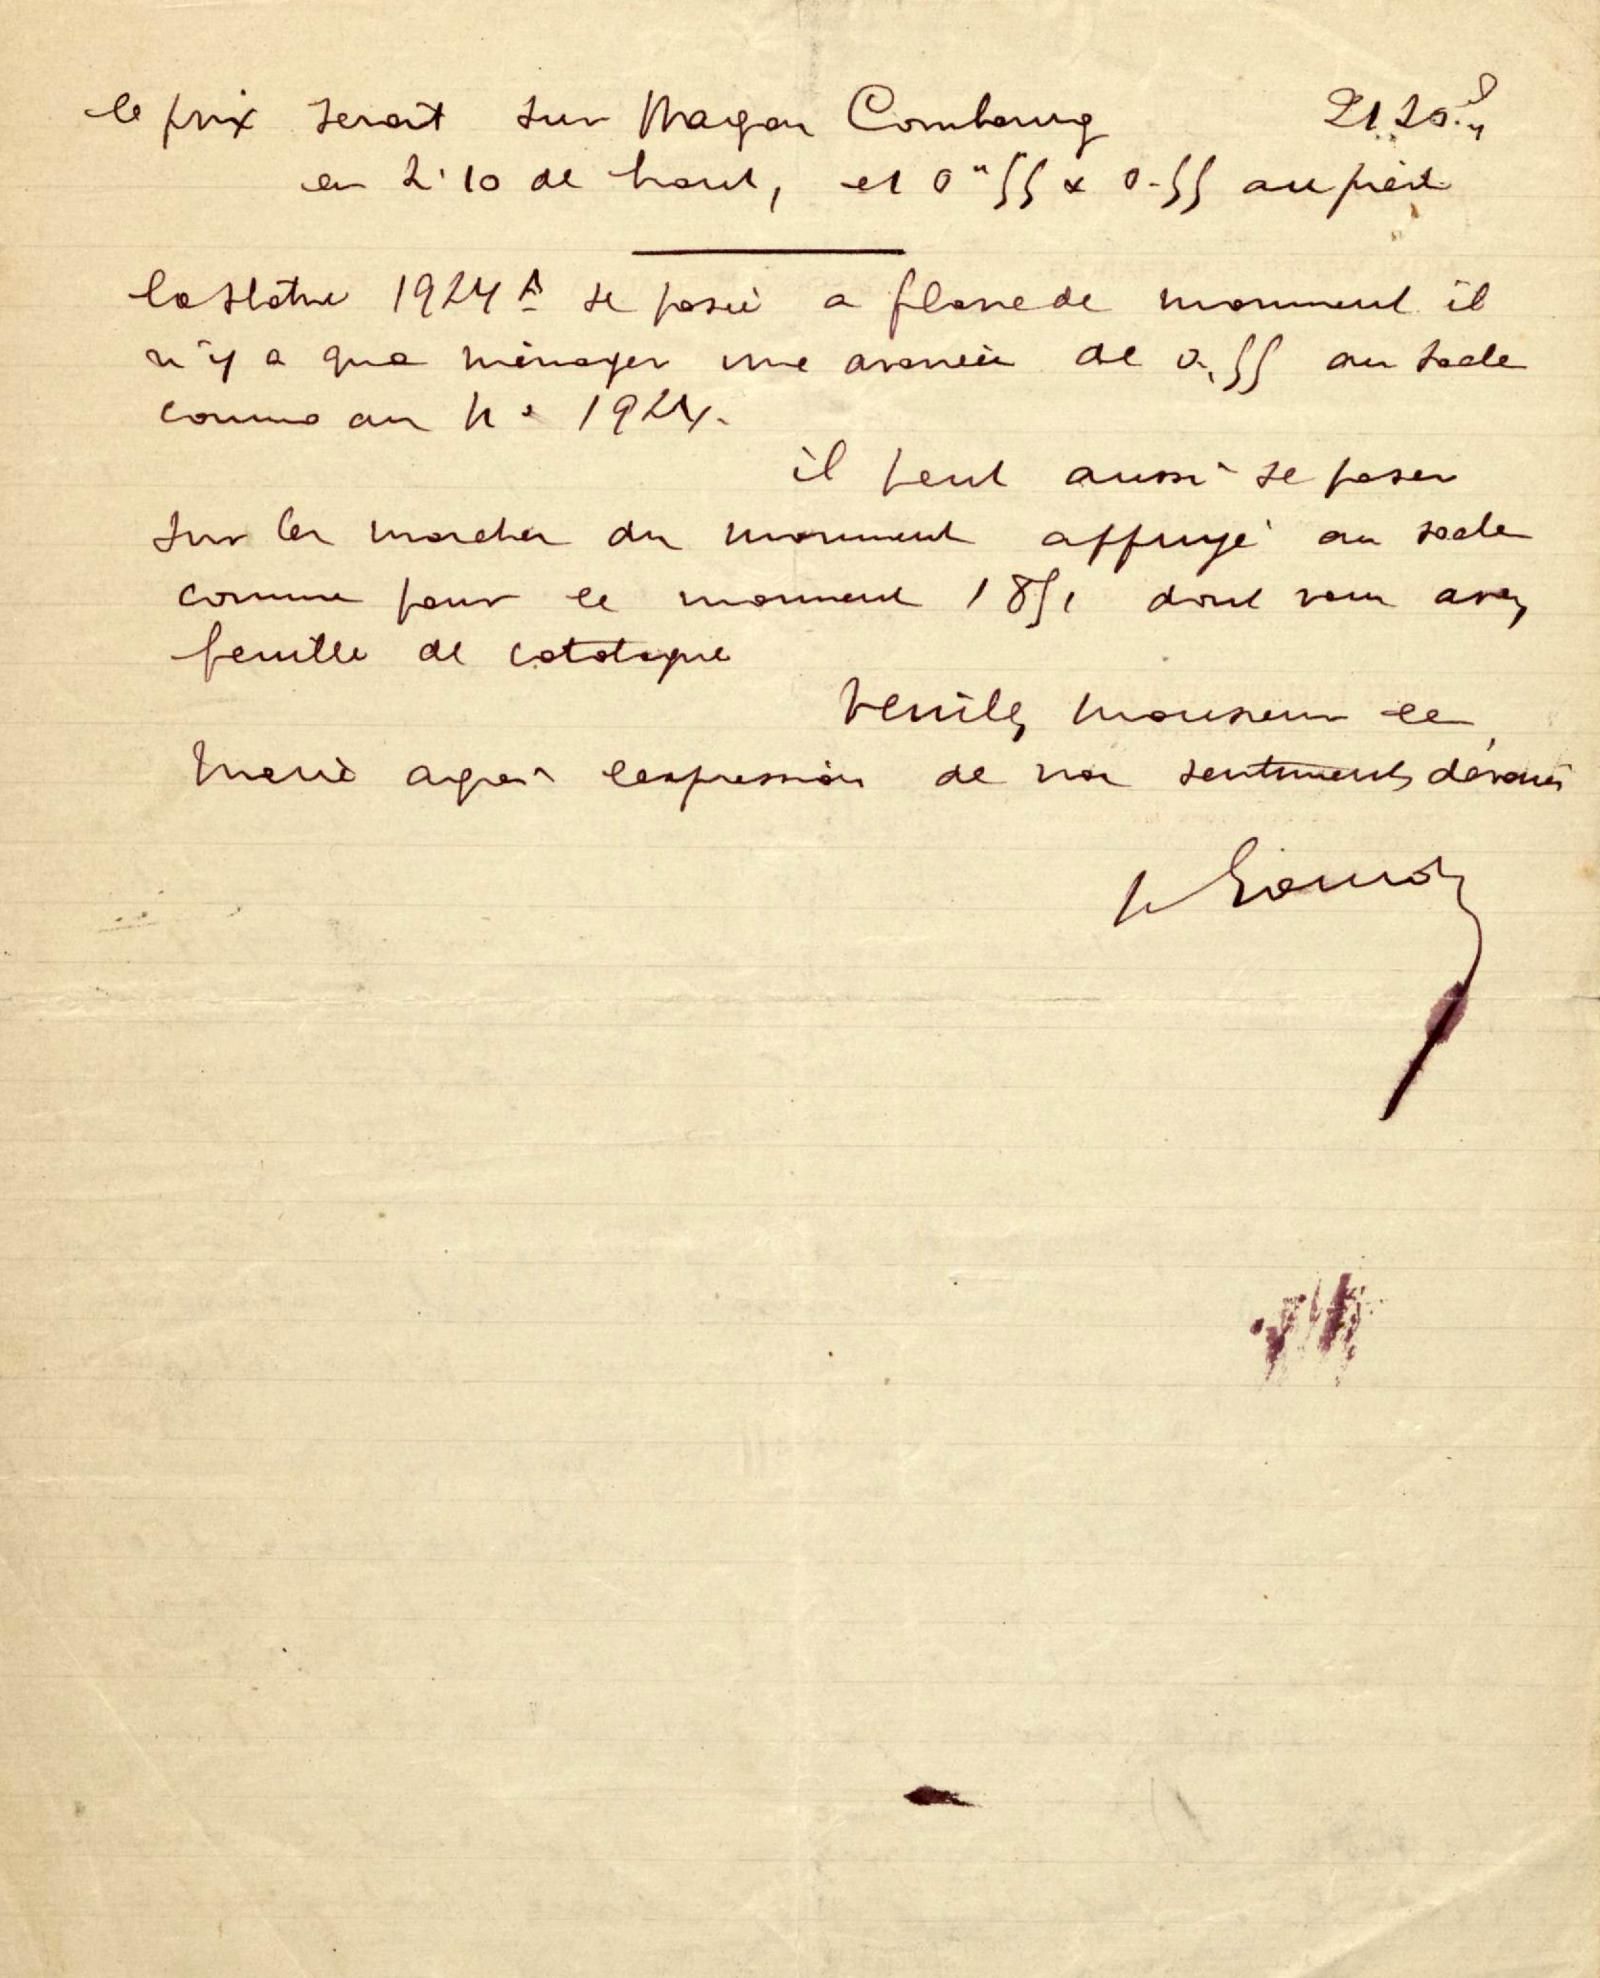 le prix serait sur Wagon Combourg 2120 f
en 2.10 de haut, et 0m55 x 0.55 au pied
la statue 1924 A se pose a flanc de monument il
n'y a qua ménager une avancée de 0,55 au socle
comme au No 1924.
il peut aussi se poser
sur les marches du monument appuyé au socle
comme pour le monument 1851 dont vous avez
feuille de catalogue
Veuillez monsieur le
Maire agréer l'expression de nos sentiments dévoués